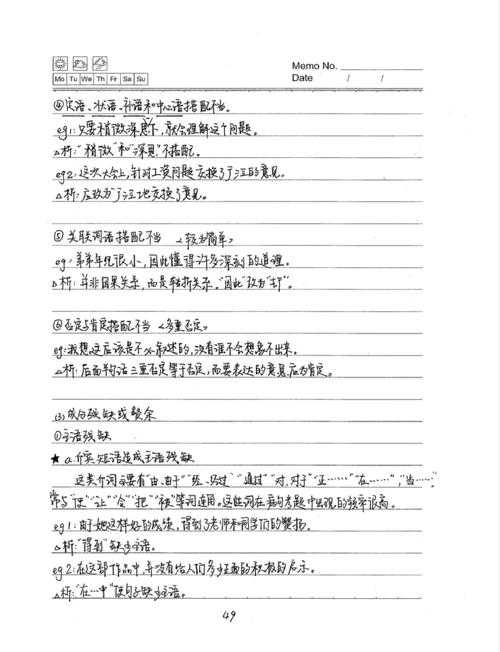 Memo No.
Mo Tu We Th Fr Sa Su
Date / /
④定语、状语、补语和中心语搭配不当。
eg1:只要稍微深思下,就会理解这个问题。
△析:"稍微"和"深思"不搭配。
eg2:这次大会上,针对工资问题交换了广泛的意见。
△析:应改为广泛地交换了意见。
⑤关联词语搭配不当 <较为简单>
eg:弟弟年纪很小,因此懂得许多深刻的道理。
△析:并非因果关系,而是转折关系。"因此"改为"却"。
⑥否定与肯定搭配不当 <多重否定>
eg:我想这应该是不必叙述的,没有谁不会想象不出来。
△析:后面半句话三重否定等于否定,而要表达的意思应为肯定。
(3)成分残缺或赘余
①主语残缺
★a.介宾短语造成主语残缺
这类介词主要有"由、由于""经、经过""通过""对、对于""在……",当……"
常与"使""让""令""把""被"等词连用。这些词在病句考题中出现的频率很高。
eg1:由于她这样好的成绩,得到了老师和同学们的赞扬。
△析:"得到"缺少主语。
eg2:在这部作品中,并没有给人们多少正面的积极的启示。
△析:"在…中"使句子缺少主语。
49